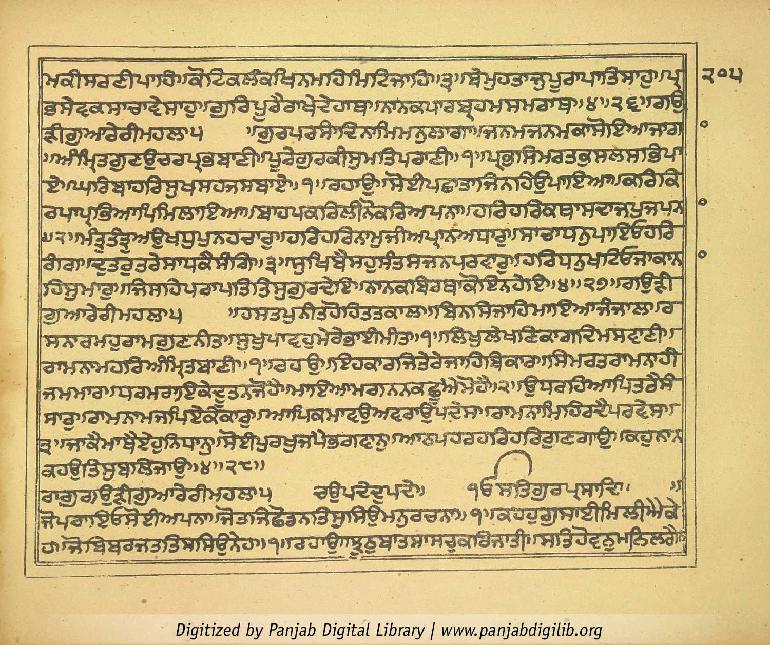 ਮਕੀਸਰਣੀਪਾਹਿ॥ਕੋਟਿਕਲੰਕਖਿਨਮਹਿਮਿਟਿਜਾਹਿ॥੩॥ਬੇਮੁਹਤਾਜੁਪੂਰਾਪਾਤਿਸਾਹੁ॥ਪ੍ਰ
ਭਸੇਵਕਸਾਚਾਵੇਸਾਹੁ॥ਗੁਰਿਪੂਰੈਰਾਖੇਦੇਹਾਥ॥ਨਾਨਕਪਾਰਬ੍ਰਹਮਸਮਰਾਥ॥੪॥੨੬॥ਗਉ
ੜੀਗੁਆਰੇਰੀਮਹਲਾ੫ ॥ਗੁਰਪਰਸਾਦਿਨਾਮਿਮਨੁਲਾਗਾ॥ਜਨਮਜਨਮਕਾਸੋਇਆਜਾਗਾ
॥ਅੰਮ੍ਰਿਤਗੁਣਉਚਰੈਪ੍ਰਭਬਾਣੀ॥ਪੂਰੇਗੁਰਕੀਸੁਮਤਿਪਰਾਣੀ॥੧॥ਪ੍ਰਭਸਿਮਰਤਕੁਸਲਸਭਿਪਾ
ਏ॥ਘਰਿਬਾਹਰਿਸੁਖਸਹਜਸਬਾਏ॥੧॥ਰਹਾਉ॥ਸੋਈਪਛਾਤਾਜਿਨਹਿਉਪਾਇਆ॥ਕਰਿਕਿ
ਰਪਾਪ੍ਰਭਿਆਪਿਮਿਲਾਇਆ॥ਬਾਹਪਕਰਿਲੀਨੋਕਰਿਅਪਨਾ॥ਹਰਿਹਰਿਕਥਾਸਦਾਜਪੁਜਪਨਾ
॥੨॥ਮੰਤ੍ਰੁਤੰਤ੍ਰੁਅਉਖਧੁਪੁਨਹਚਾਰੁ॥ਹਰਿਹਰਿਨਾਮੁਜੀਅਪ੍ਰਾਨਅਧਾਰੁ॥ਸਾਚਾਧਨੁਪਾਇਓਹਰਿ
ਰੰਗਿ॥ਦੁਤਰੁਤਰੇਸਾਧਕੈਸੰਗਿ॥੩॥ਸੁਖਿਬੈਸਹੁਸੰਤਸਜਨਪਰਵਾਰੁ॥ਹਰਿਧਨੁਖਟਿਓਜਾਕਾਨ
ਹਿਸੁਮਾਰੁ॥ਜਿਸਹਿਪਰਾਪਤਿਤਿਸੁਗੁਰੁਦੇਇ॥ਨਾਨਕਬਿਰਥਾਕੋਇਨਹੇਇ॥੪॥੨੭॥ਗਉੜੀ
ਗੁਆਰੇਰੀਮਹਲਾ੫ ॥ਹਸਤਪੁਨੀਤਹੋਹਿਤਤਕਾਲ॥ਬਿਨਸਿਜਾਹਿਮਾਇਆਜੰਜਾਲ॥ਰ
ਸਨਾਰਮਹੁਰਾਮਗੁਣਨੀਤ॥ਸੁਖੁਪਾਵਹੁਮੇਰੇਭਾਈਮੀਤ॥੧॥ਲਿਖੁਲੇਖਣਿਕਾਗਦਿਮਸਵਾਣੀ॥
ਰਾਮਨਾਮਹਰਿਅੰਮ੍ਰਿਤਬਾਣੀ॥੧॥ਰਹਾਉ॥ਇਹਕਾਰਜਿਤੇਰੇਜਾਹਿਬਿਕਾਰ॥ਸਿਮਰਤਰਾਮਨਾਹੀ
ਜਮਮਾਰ॥ਧਰਮਰਾਇਕੇਦੂਤਨਜੋਹੈ॥ਮਾਇਆਮਗਨਨਕਛੂਐਮੋਹੈ॥੨॥ਉਧਰਹਿਆਪਿਤਰੈਸੰ
ਸਾਰੁ॥ਰਾਮਨਾਮਜਪਿਏਕੰਕਾਰੁ॥ਆਪਿਕਮਾਉਅਵਰਾਉਪਦੇਸ॥ਰਾਮਨਾਮਹਿਰਦੈਪਰਵੇਸ॥
੩॥ਜਾਕੈਮਾਥੈਏਹੁਨਿਧਾਨੁ॥ਸੋਈਪੁਰਖੁਜਪੈਭਗਵਾਨੁ॥ਆਠਪਹਰਹਰਿਹਰਿਗੁਣਗਾਉ॥ਕਹੁਨਾਨ
ਕਹਉਤਿਸੁਬਲਿਜਾਉ॥੪॥੨੮॥
ਰਾਗੁਗਉੜੀਗੁਆਰੇਰੀਮਹਲਾ੫ ਚਉਪਦੇਦੁਪਦੇ॥ ੧ਓਸਤਿਗੁਰਪ੍ਰਸਾਦਿ॥ ॥
ਜੋਪਰਾਇਓਸੋਈਅਪਨਾ॥ਜੋਤਜਿਛੋਡਨਤਿਸੁਸਿਉਮਨੁਰਚਨਾ॥੧॥ਕਹਹੁਗੁਸਾਈਮਿਲੀਐਕੇ
ਹ॥ਜੋਬਿਬਰਜਤਤਿਸਸਿਉਨੇਹ॥੧॥ਰਹਾਉ॥ਝੂਠੁਬਾਤਸਾਸਚੁਕਰਿਜਾਤੀ॥ਸਤਿਹੋਵਨੁਮਨਿਲਗੈ
੨੦੫
Digitized by Panjab Digital Library | www.panjabdigilib.org